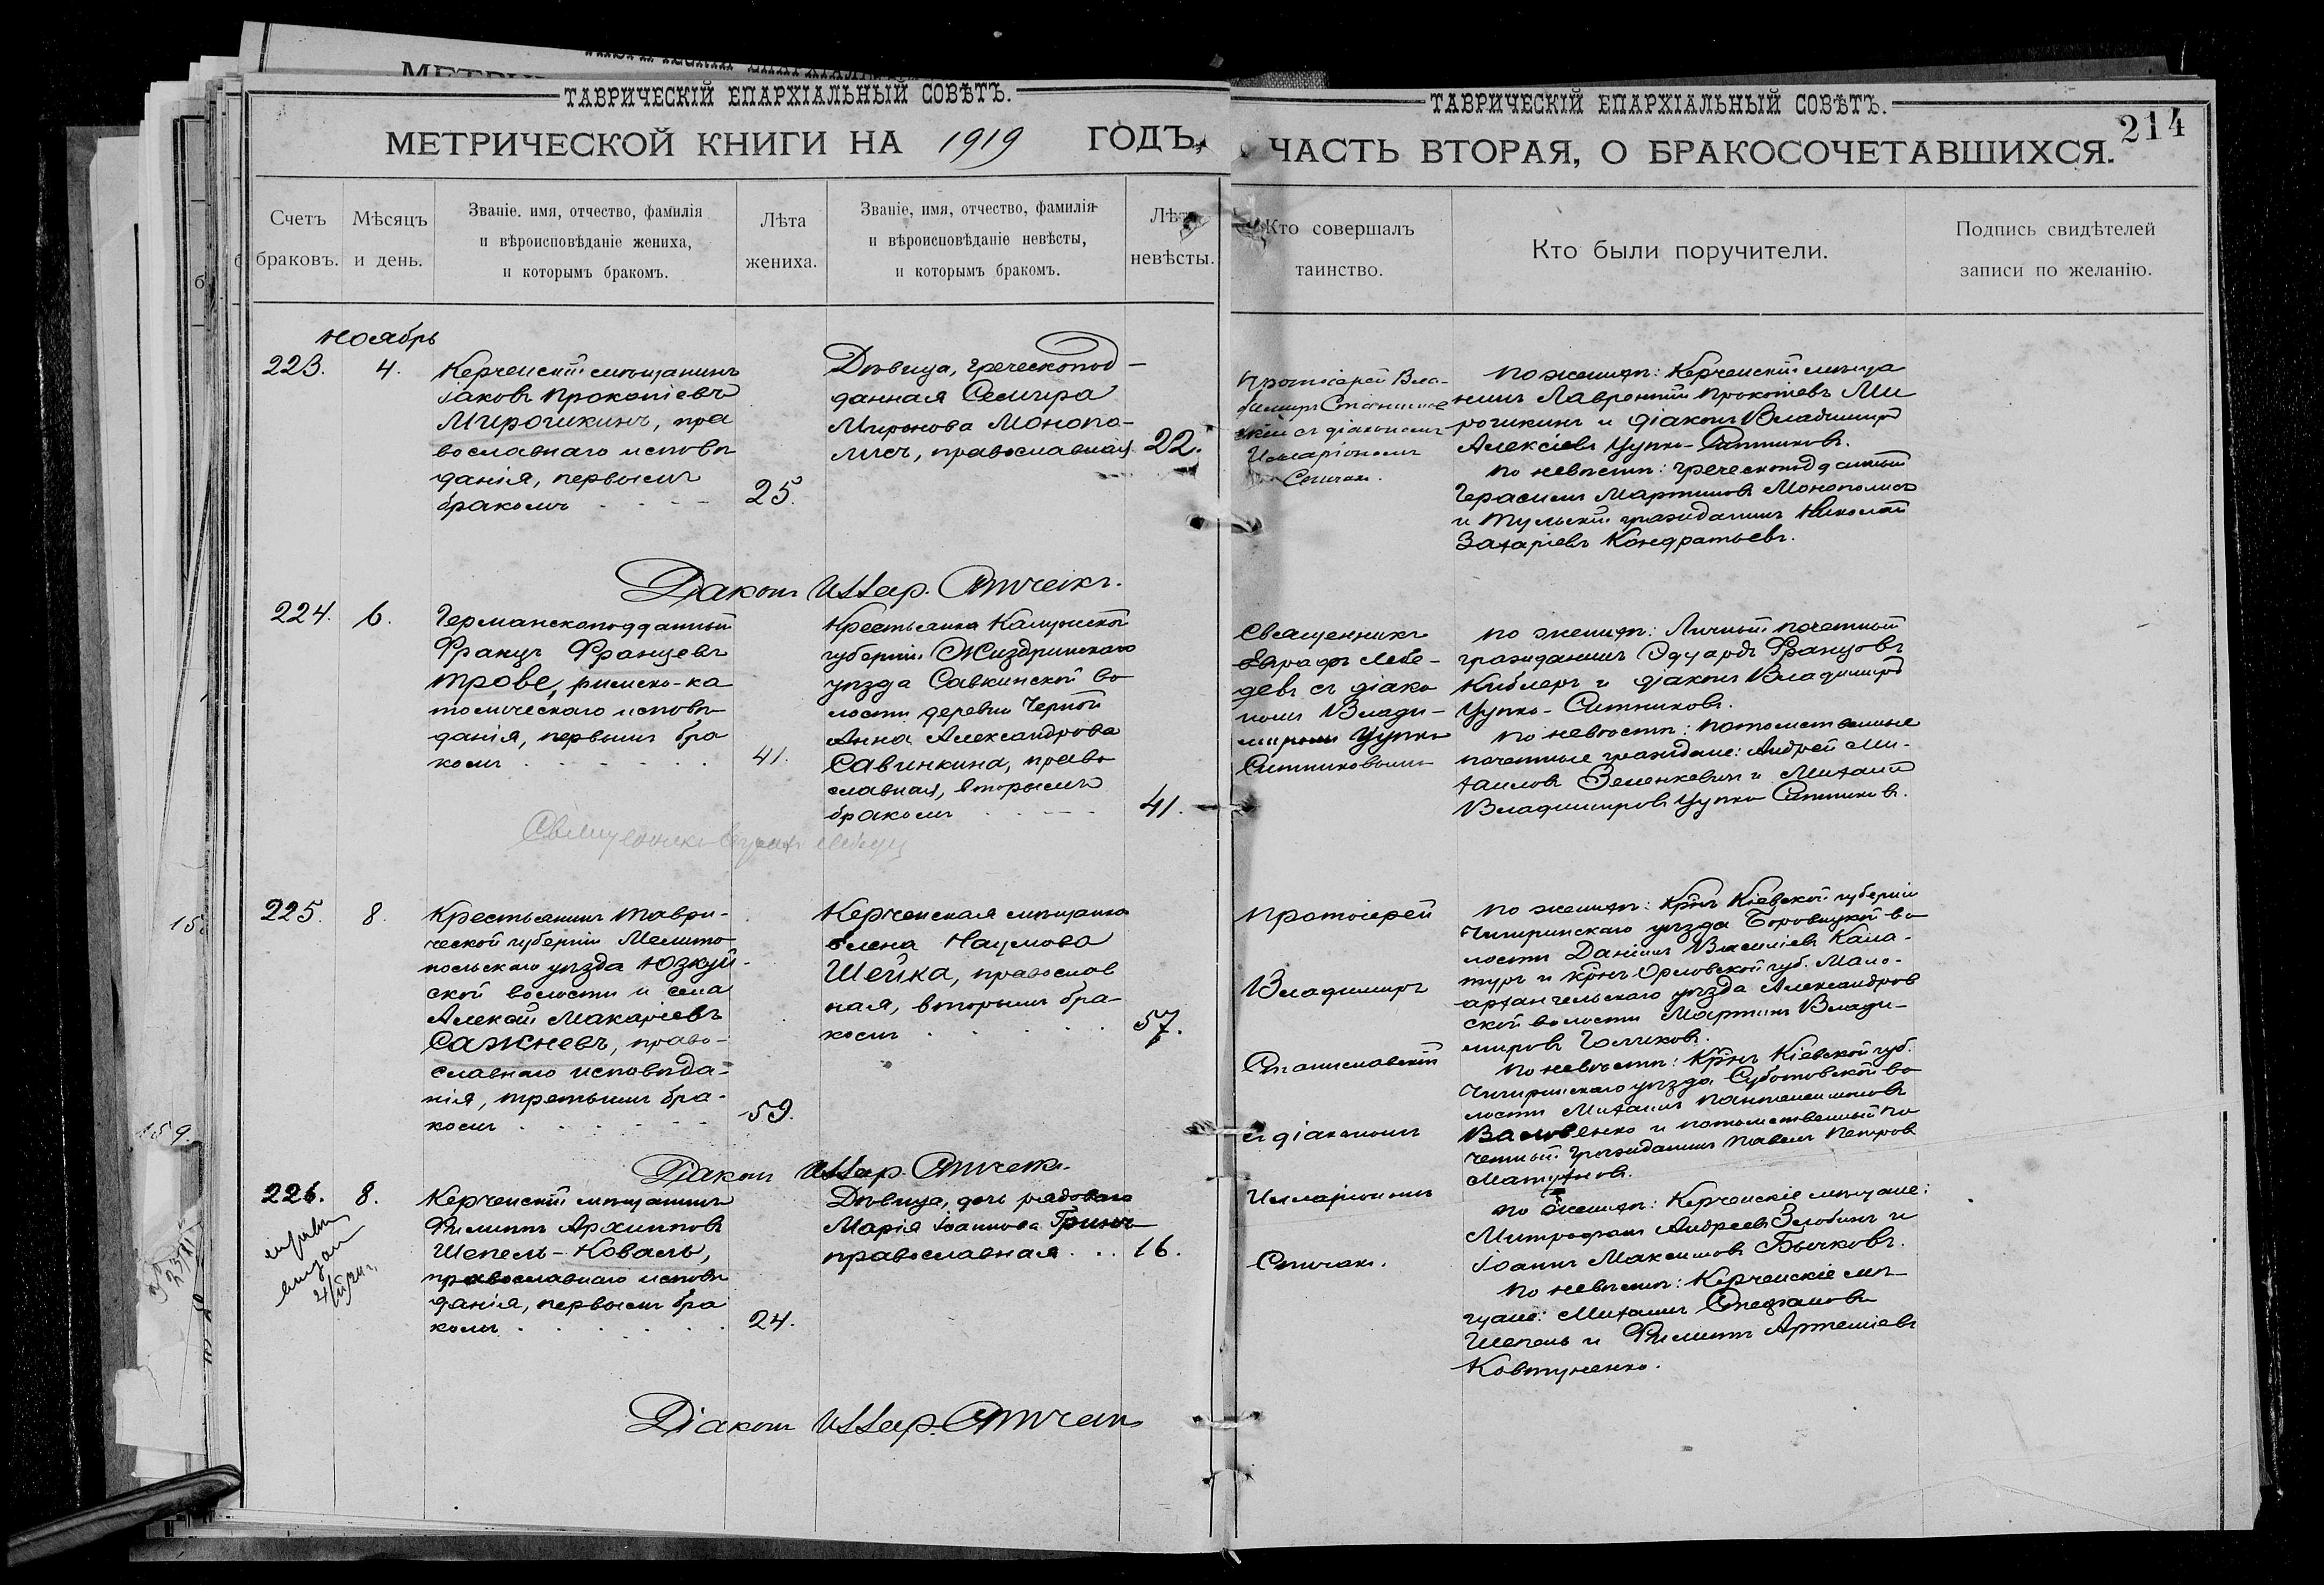 ТАВРИЧЕСКІЙ ЕПАРХІАЛЬНЫЙ СОВѢТЪ.
МЕТРИЧЕСКОЙ КНИГИ НА 1919 ГОДЪ,
Счетъ браковъ.
Мѣсяцъ и день.
Званіе, имя, отчество, фамилія
и вѣроисповѣданіе жениха,
и которымъ бракомъ.
Лѣта жениха.
Званіе, имя, отчество, фамилія
и вѣроисповѣданіе невѣсты,
и которымъ бракомъ.
Лѣта невѣсты.
ТАВРИЧЕСКІЙ ЕПАРХІАЛЬНЫЙ СОВѢТЪ.
214
ЧАСТЬ ВТОРАЯ, О БРАКОСОЧЕТАВШИХСЯ.
Кто совершалъ
таинство.
Кто были поручители.
Подпись свидѣтелей
записи по желанію.
Ноябрь
223. 4.
Керченскій мѣщанинъ
Іаковъ Прокопіевъ
Мирошкинъ, пра
вославнаго исповѣ
данія, первымъ
бракомъ
25.
Дѣвица, греческопод-
данная
Миронова Монопо-
лисъ, православная
22.
Протоіерей Вла-
димиръ Станислав
скій съ діакономъ
Илларіономъ
По женихѣ: Керченскій мѣща
нинъ Лаврентій Прокопіевъ Ми
рошкинъ и діаконъ Владимиръ
Алексіевъ Цупко-Ситниковъ.
По невѣстѣ: греческоподданный
Герасимъ Мартиновъ Монополисъ
и Тульскій гражданинъ Николай
Захаріевъ Кондратьевъ.
Діаконъ Иллар.
224. 6.
Германскоподданный
Францъ Францевъ
Трове, римско-ка
толическаго исповѣ
данія, первымъ бра
комъ
41.
Крестьянка Калужской
губерніи Жиздринскаго
уѣзда Савкинской во
лости деревни Черной
Анна Александрова
Савинкина, право
славная, вторымъ
бракомъ
41.
Священникъ
Евграфъ Лебе-
девъ съ діако
номъ Влади-
миромъ Цупко
Ситниковымъ
По женихѣ: Личный почетный
гражданинъ Эдуардъ Францовъ
Киблеръ и діаконъ Владимиръ
Цупко-Ситниковъ.
По невѣстѣ: потомственные
почетные граждане: Андрей Ми-
хаиловъ Зеленкевичъ и Михаилъ
Владимировъ Цупко Ситниковъ.
Священникъ Евграфъ
225. 8.
Крестьянинъ Таври-
ческой губерніи Мелито
польскаго уѣзда Юзкуй-
ской волости и села
Алексій Макаріевъ
Сажневъ, право-
славнаго исповѣда-
нія, третьимъ бра-
комъ
59.
Керченская мѣщанка
Елена Наумова
Шейка, православ
ная, вторымъ бра-
комъ
57.
Протоіерей
Владимиръ
Станиславскій
съ діакономъ
Илларіономъ
По женихѣ: Крнъ Кіевской губерніи
Чигиринскаго уѣзда Боровицкой во
лости Даніилъ Василіевъ Кала-
туръ и крнъ Орловской губ. Мало-
архангельскаго уѣзда Александров
ской волости Мартинъ Влади-
мировъ Голиковъ.
По невѣстѣ: Крнъ Кіевской губ.
Чигиринскаго уѣзда Суботовской во
лости Михаилъ Пантелеимоновъ
и потомственный по
четный гражданинъ Павелъ Петровъ
Діаконъ Иллар.
226. 8.
Керченскій мѣщанинъ
Филиппъ Архиповъ
Шепель-Коваль,
православнаго исповѣ
данія, первымъ бра
комъ
24.
Дѣвица, дочь рядоваго
Марія Іоаннова Гринь
православная
16.
По женихѣ: Керченскіе мѣщане:
Митрофанъ Андреевъ Злобинъ и
Іоаннъ Максимовъ Бычковъ.
По невѣстѣ: Керченскіе мѣ-
щане: Михаилъ Стефановъ
Шепель и Филиппъ Артеміевъ
Ковтуненко.
Діаконъ Иллар.